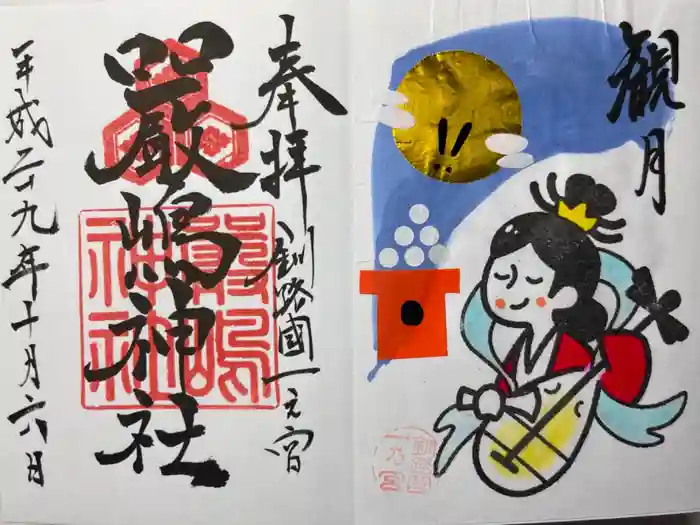 観月
奉拝
釧路國一之宮
嚴嶋神社
平成二十九年十月六日
嚴嶋
神社
釧路國
一乃宮